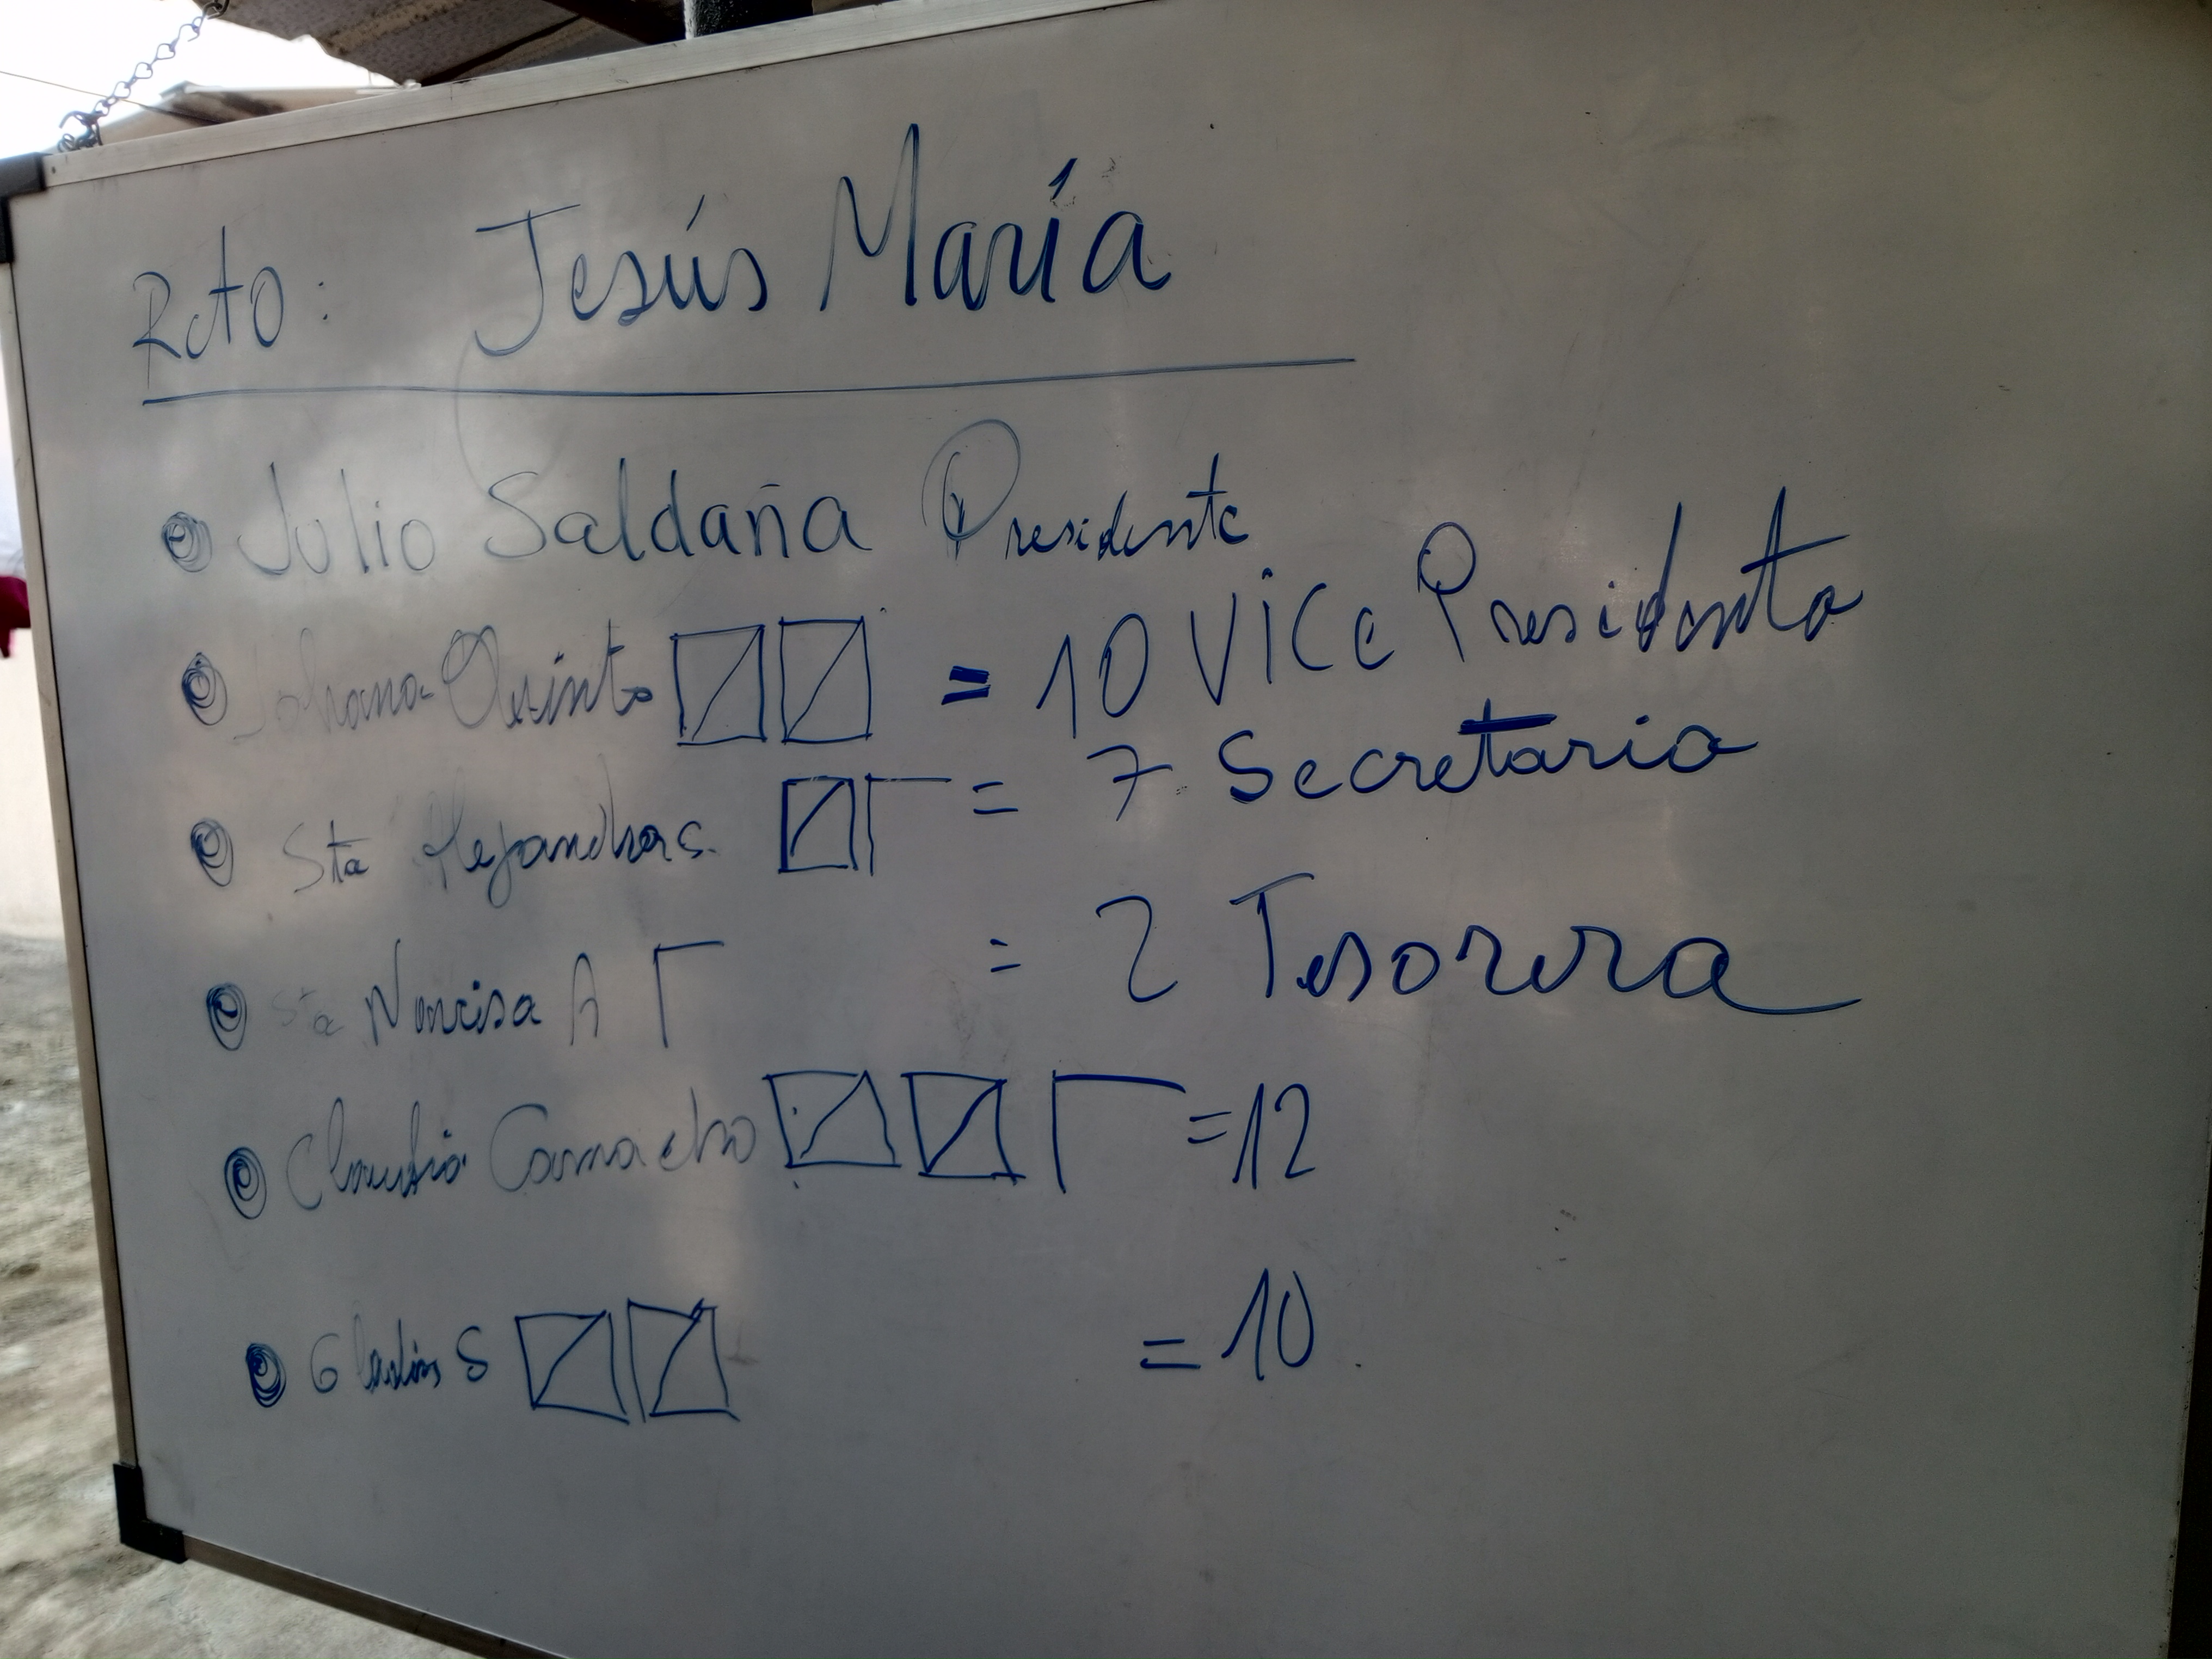 Rcto: Jesús María
Julio Saldaña Presidente
Johana Quinto = 10 Vice Presidenta
Sta Alejandra S. = 7 Secretaria
Sta Narcisa A = 2 Tesorera
Claudia Camacho = 12
Gladis S = 10